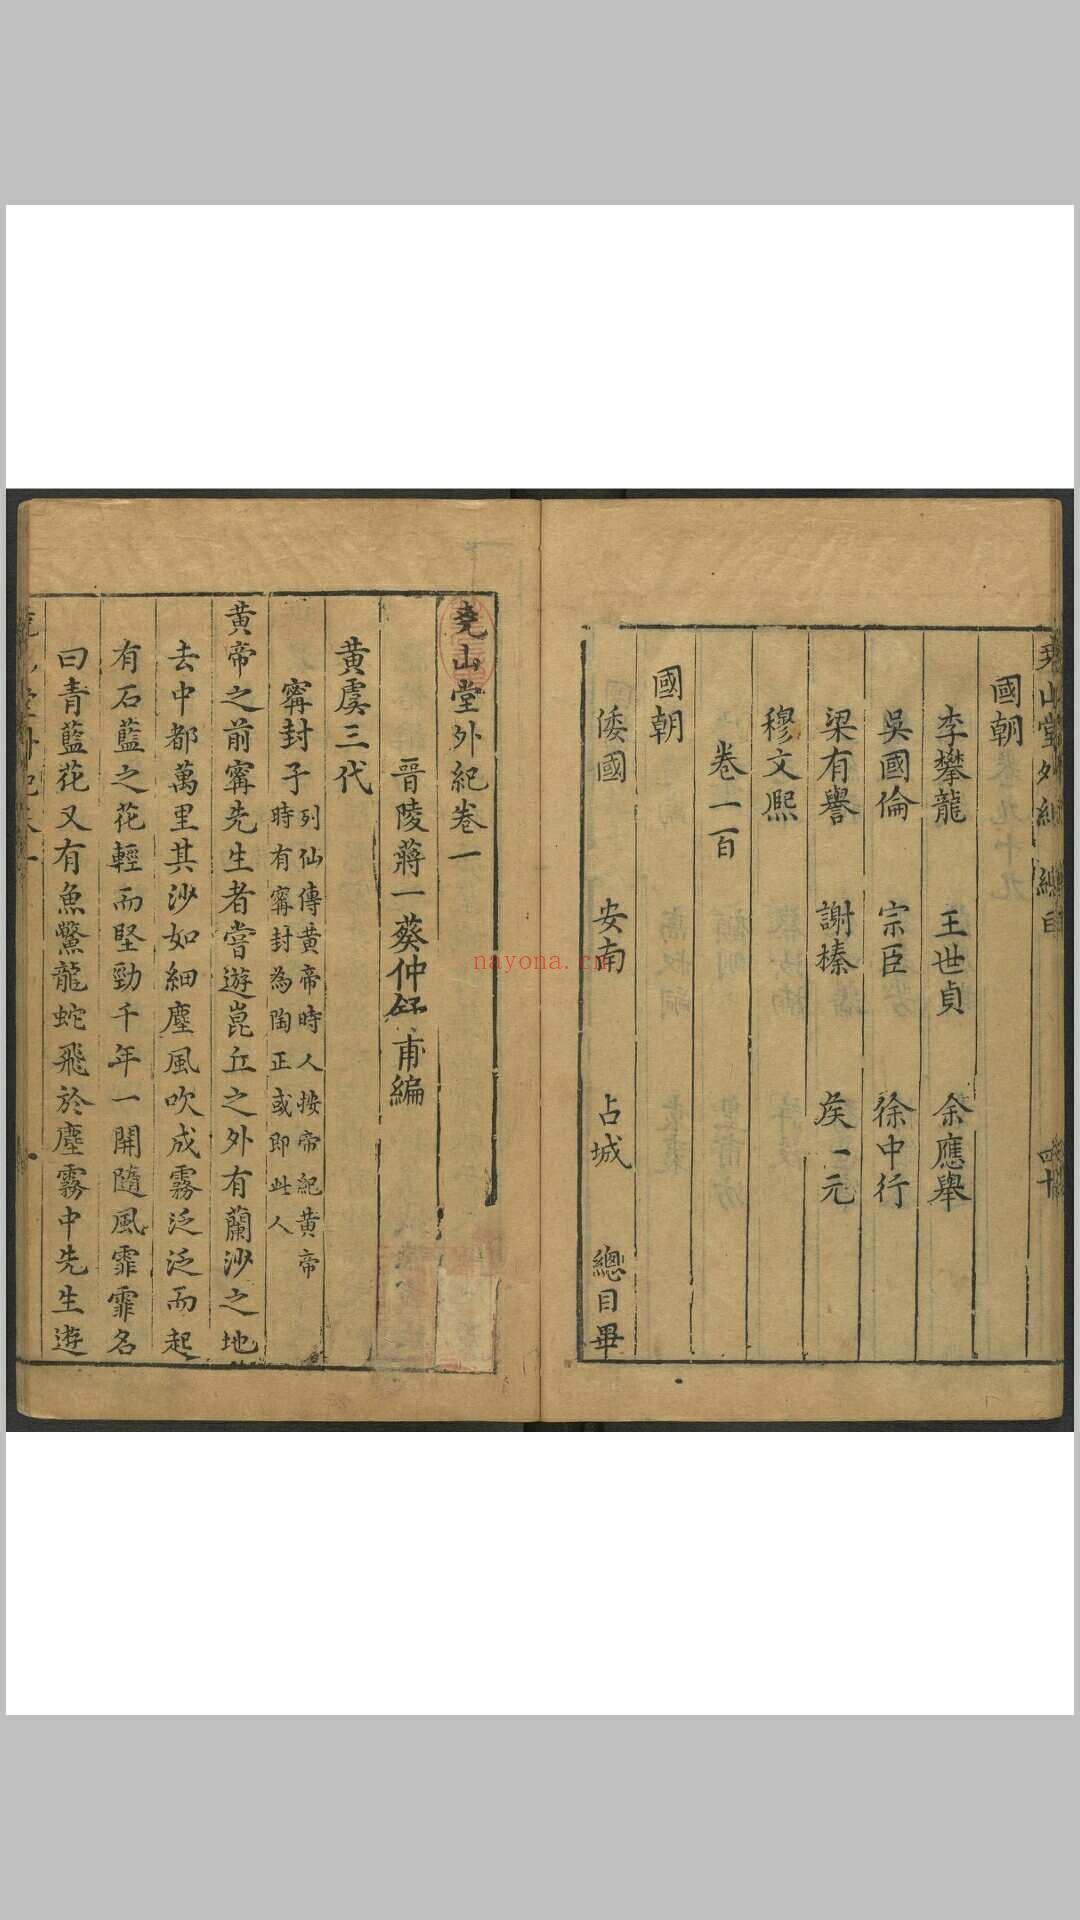 堯山堂外紀 總目 四十
國朝
李攀龍 王世貞 余應舉
吳國倫 宗臣 徐中行
梁有譽 謝榛 矦一元
穆文熙
卷一百
國朝
倭國 安南 占城 總目畢
堯山堂外紀卷一
晉陵蔣一葵仲舒甫編
黃虞三代
甯封子
列仙傳黃帝時人按帝紀黃帝
時有甯封為陶正或即此人
黃帝之前甯先生者嘗遊崑丘之外有蘭沙之地
去中都萬里其沙如細塵風吹成霧泛泛而起
有石藍之花輕而堅勁千年一開隨風霏霏名
曰青藍花又有魚鱉龍蛇飛於塵霧中先生遊
nayona.cn